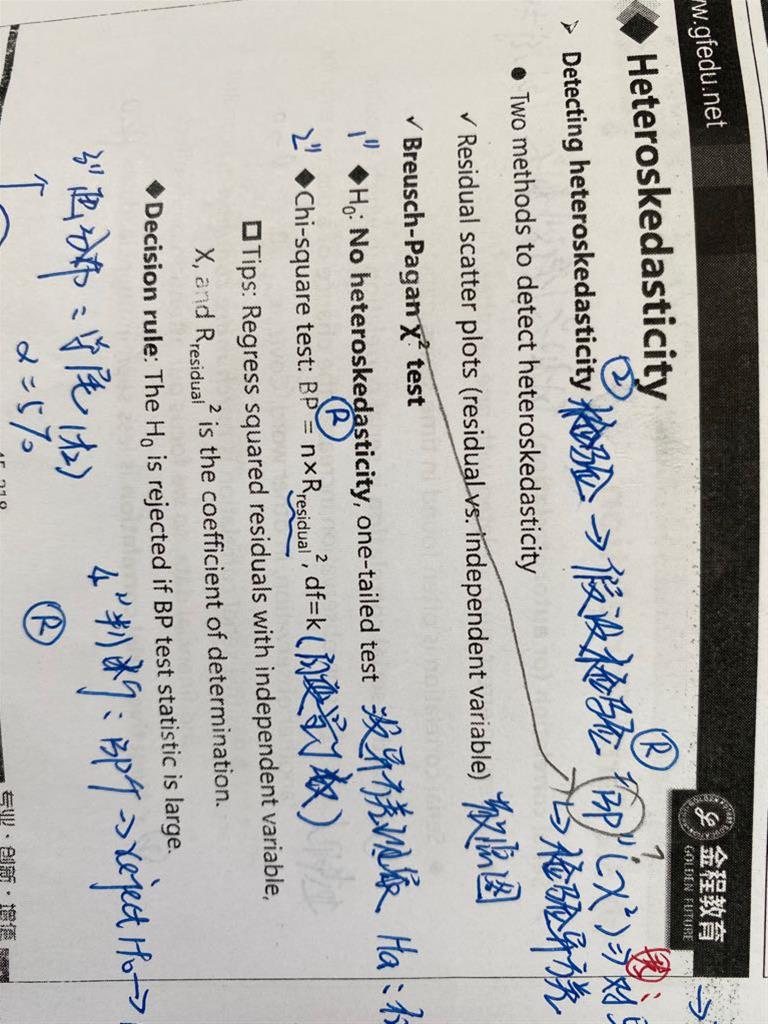 w.gfedu.net
金程教育
GOLDEN FUTURE
Heteroskedasticity
Detecting heteroskedasticity ② 检验 → 假设检验 Ⓡ
"BP" (χ²) ⇒
Two methods to detect heteroskedasticity
→ 检验异方差
Residual scatter plots (residual vs. independent variable) 散点图
Breusch-Pagan χ² test
1" H₀: No heteroskedasticity, one-tailed test 没异方差 Ha:
2" Chi-square test: BP = n×R residual², df=k (自变量个数)
Ⓡ
Tips: Regress squared residuals with independent variable,
X, and R residual² is the coefficient of determination.
Decision rule: The H₀ is rejected if BP test statistic is large.
3" 画分布: 单尾 (右) 4" 判断: BP↑ → reject H₀ →
α = 5% Ⓡ
专业·创新·增值